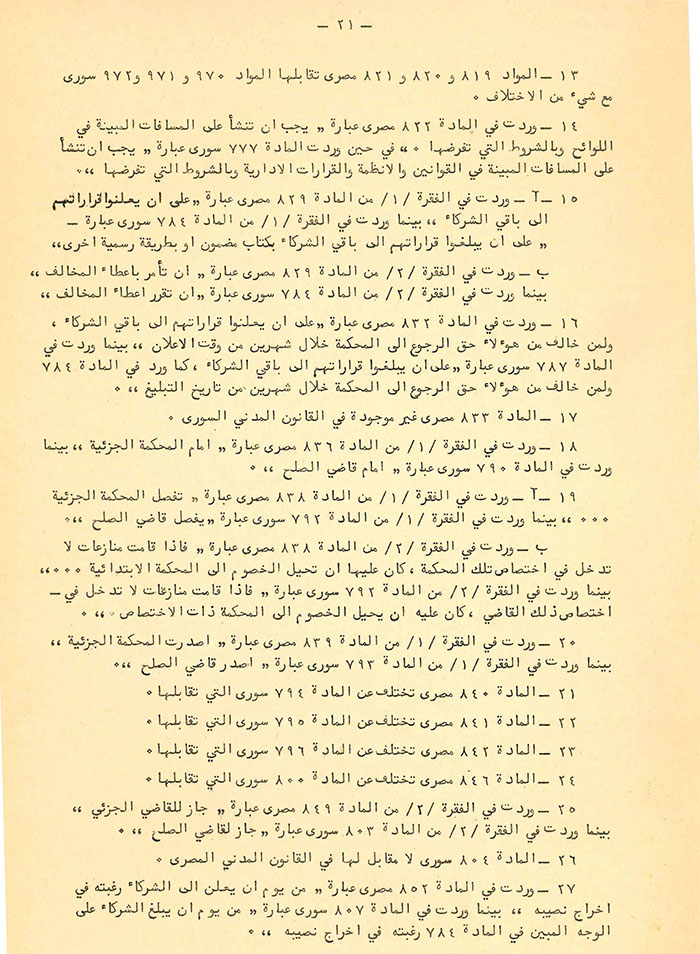 — ٢١ —
١٣ — المواد ٨١٩ و ٨٢٠ و ٨٢١ مصرى تقابلها المواد ٩٧٠ و ٩٧١ و٩٧٢ سورى
مع شيء من الاختلاف ٠
١٤ — وردت في المادة ٨٢٢ مصرى عبارة „ يجب ان تنشأ على المسافات المبينة في
اللوائح وبالشروط التي تفرضها ٠„ في حين وردت المادة ٧٧٧ سورى عبارة „ يجب ان تنشأ
على المسافات المبينة في القوانين والانظمة والقرارات الادارية وبالشروط التي تفرضها „٠
١٥ — آ — وردت في الفقرة /١/ من المادة ٨٢٩ مصرى عبارة „على ان يعلنوا قراراتهم
الى باقي الشركاء „ بينما وردت في الفقرة /١/ من المادة ٧٨٤ سورى عبارة —
„ على ان يبلغوا قراراتهم الى باقي الشركاء بكتاب مضمون او بطريقة رسمية اخرى„
ب — وردت في الفقرة /٢/ من المادة ٨٢٩ مصرى عبارة „ ان تأمر باعطاء المخالف „
بينما وردت في الفقرة /٢/ من المادة ٧٨٤ سورى عبارة „ان تقرر اعطاء المخالف „
١٦ — وردت في المادة ٨٣٢ مصرى عبارة „على ان يعلنوا قراراتهم الى باقي الشركاء ،
ولمن خالف من هوءلاء حق الرجوع الى المحكمة خلال شهرين من وقت الاعلان „ بينما وردت في
المادة ٧٨٧ سورى عبارة „على ان يبلغوا قراراتهم الى باقي الشركاء ، كما ورد في المادة ٧٨٤
ولمن خالف من هوءلاء حق الرجوع الى المحكمة خلال شهرين من تاريخ التبليغ „ ٠
١٧ — المادة ٨٣٣ مصرى غير موجودة في القانون المدني السورى ٠
١٨ — وردت في الفقرة /١/ من المادة ٨٣٦ مصرى عبارة „ امام المحكمة الجزئية „ بينما
وردت في المادة ٧٩٠ سورى عبارة „ امام قاضي الصلح „ ٠
١٩ — آ — وردت في الفقرة /١/ من المادة ٨٣٨ مصرى عبارة „ تفصل المحكمة الجزئية
٠٠٠ „ بينما وردت في الفقرة /١/ من المادة ٧٩٢ سورى عبارة „يفصل قاضي الصلح „٠
ب — وردت في الفقرة /٢/ من المادة ٨٣٨ مصرى عبارة „ فاذا قامت منازعات لا
تدخل في اختصاص تلك المحكمة ، كان عليها ان تحيل الخصوم الى المحكمة الابتدائية ٠٠٠„
بينما وردت في الفقرة /٢/ من المادة ٧٩٢ سورى عبارة „ فاذا قامت منازعات لا تدخل في —
اختصاص ذلك القاضي ، كان عليه ان يحيل الخصوم الى المحكمة ذات الاختصاص ٠„ ٠
٢٠ — وردت في الفقرة /١/ من المادة ٨٣٩ مصرى عبارة „ اصدرت المحكمة الجزئية „
بينما وردت في الفقرة /١/ من المادة ٧٩٣ سورى عبارة „ اصدر قاضي الصلح „٠
٢١ — المادة ٨٤٠ مصرى تختلف عن المادة ٧٩٤ سورى التي تقابلها ٠
٢٢ — المادة ٨٤١ مصرى تختلف عن المادة ٧٩٥ سورى التي تقابلها ٠
٢٣ — المادة ٨٤٢ مصرى تختلف عن المادة ٧٩٦ سورى التي تقابلها ٠
٢٤ — المادة ٨٤٦ مصرى تختلف عن المادة ٨٠٠ سورى التي تقابلها ٠
٢٥ — وردت في الفقرة /٢/ من المادة ٨٤٩ مصرى عبارة „ جاز للقاضي الجزئي „
بينما وردت في الفقرة /٢/ من المادة ٨٠٣ سورى عبارة „ جاز لقاضي الصلح „ ٠
٢٦ — المادة ٨٠٤ سورى لا مقابل لها في القانون المدني المصرى ٠
٢٧ — وردت في المادة ٨٥٢ مصرى عبارة „ من يوم ان يعلن الى الشركاء رغبته في
اخراج نصيبه „ بينما وردت في المادة ٨٠٧ سورى عبارة „ من يوم ان يبلغ الشركاء على
الوجه المبين في المادة ٧٨٤ رغبته في اخراج نصيبه „ ٠